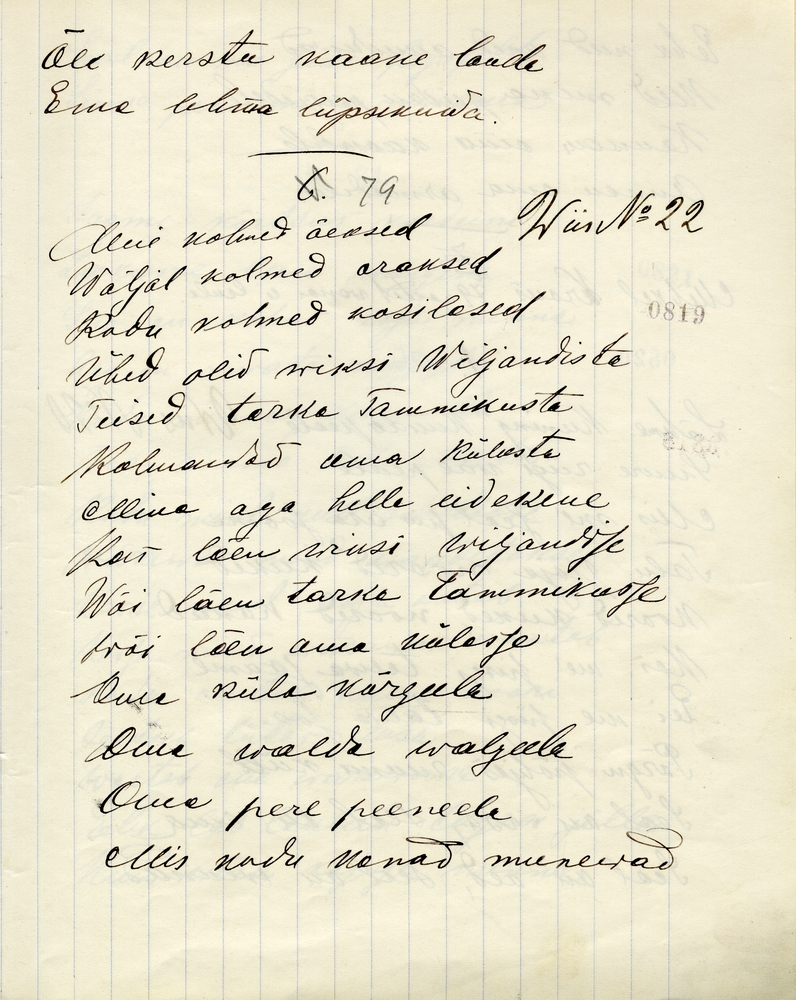 Õle kerstu kaane laude
Ema lehma lüpsikuida.
6. 79
Wiis № 22
Meie kolmed õeksed
Wäljal kolmed oraksed
Kodu kolmed kosilased
Ühed olid wiksi Wiljandista
Teised tarka Tammikusta
Kolmandad oma külasta
0819
Mina aga hella eidekene
Kas läen wiksi wiljandisse
Wõi läen tarka Tammikusse
wõi läen oma külasse
Oma küla kõrgeele
Oma walda walgeele
Oma pere peeneele
Mis kodu kanad munewad